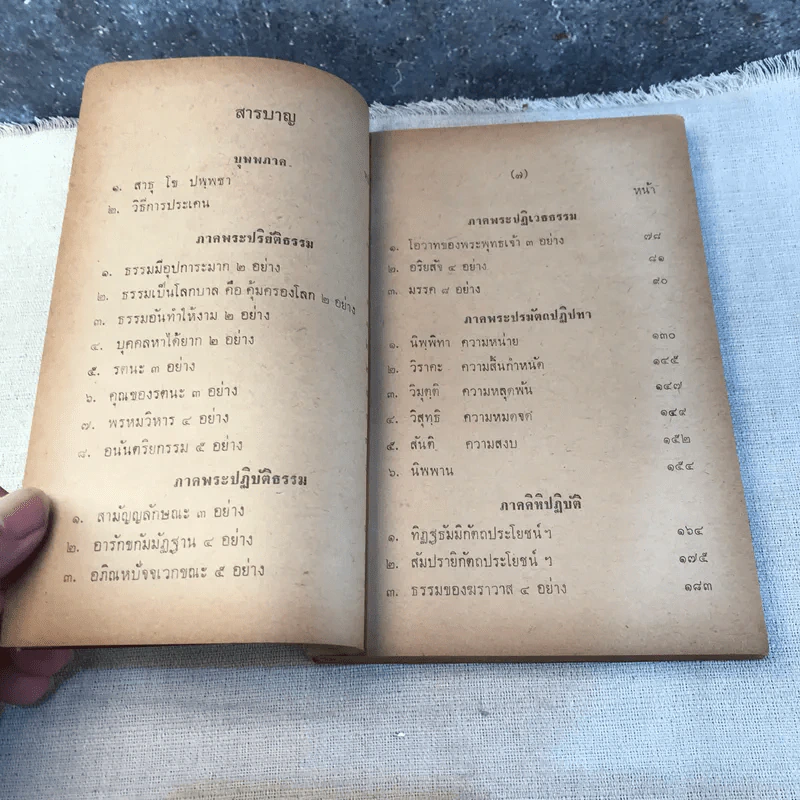 สารบาญ
บุพพภาค
๑. สาธุ โข ปพฺพชา
๒. วิธีการประเคน
ภาคพระปริยัติธรรม
๑. ธรรมมีอุปการะมาก ๒ อย่าง
๒. ธรรมเป็นโลกบาล คือ คุ้มครองโลก ๒ อย่าง
๓. ธรรมอันทำให้งาม ๒ อย่าง
๔. บุคคลหาได้ยาก ๒ อย่าง
๕. รตนะ ๓ อย่าง
๖. คุณของรตนะ ๓ อย่าง
๗. พรหมวิหาร ๔ อย่าง
๘. อนันตริยกรรม ๕ อย่าง
ภาคพระปฏิบัติธรรม
๑. สามัญญลักษณะ ๓ อย่าง
๒. อารักขกัมมัฏฐาน ๔ อย่าง
๓. อภิณหปัจจเวกขณะ ๕ อย่าง
(๗)
หน้า
ภาคพระปฏิเวธธรรม
๑. โอวาทของพระพุทธเจ้า ๓ อย่าง ๗๘
๒. อริยสัจ ๔ อย่าง ๘๑
๓. มรรค ๘ อย่าง ๙๐
ภาคพระปรมัตถปฏิปทา
๑. นิพฺพิทา ความหน่าย ๑๓๐
๒. วิราคะ ความสิ้นกำหนัด ๑๔๕
๓. วิมุตฺติ ความหลุดพ้น ๑๔๗
๔. วิสุทฺธิ ความหมดจด ๑๔๙
๕. สันติ ความสงบ ๑๕๒
๖. นิพพาน ๑๕๔
ภาคคิหิปฏิบัติ
๑. ทิฏฐธัมมิกัตถประโยชน์ ฯ ๑๖๔
๒. สัมปรายิกัตถประโยชน์ ฯ ๑๗๕
๓. ธรรมของฆราวาส ๔ อย่าง ๑๘๓